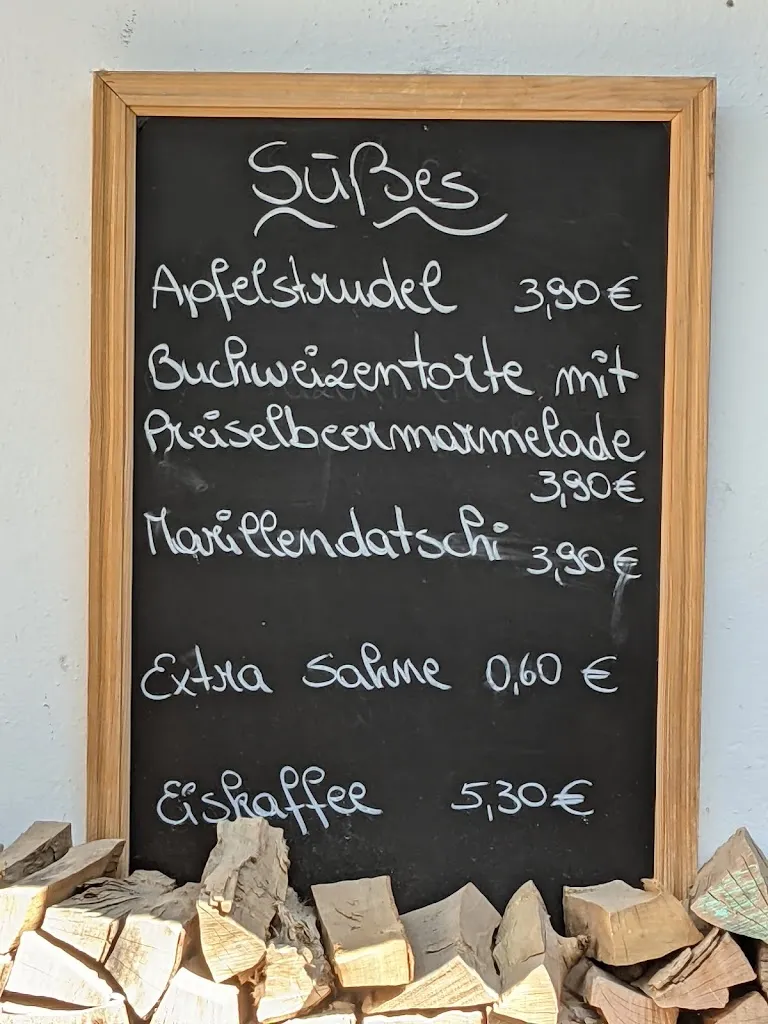 Süßes
Apfelstrudel 3,90 €
Buchweizentorte mit
Preiselbeermarmelade
3,90 €
Marillendatschi 3,90 €
Extra Sahne 0,60 €
Eiskaffee 5,30 €